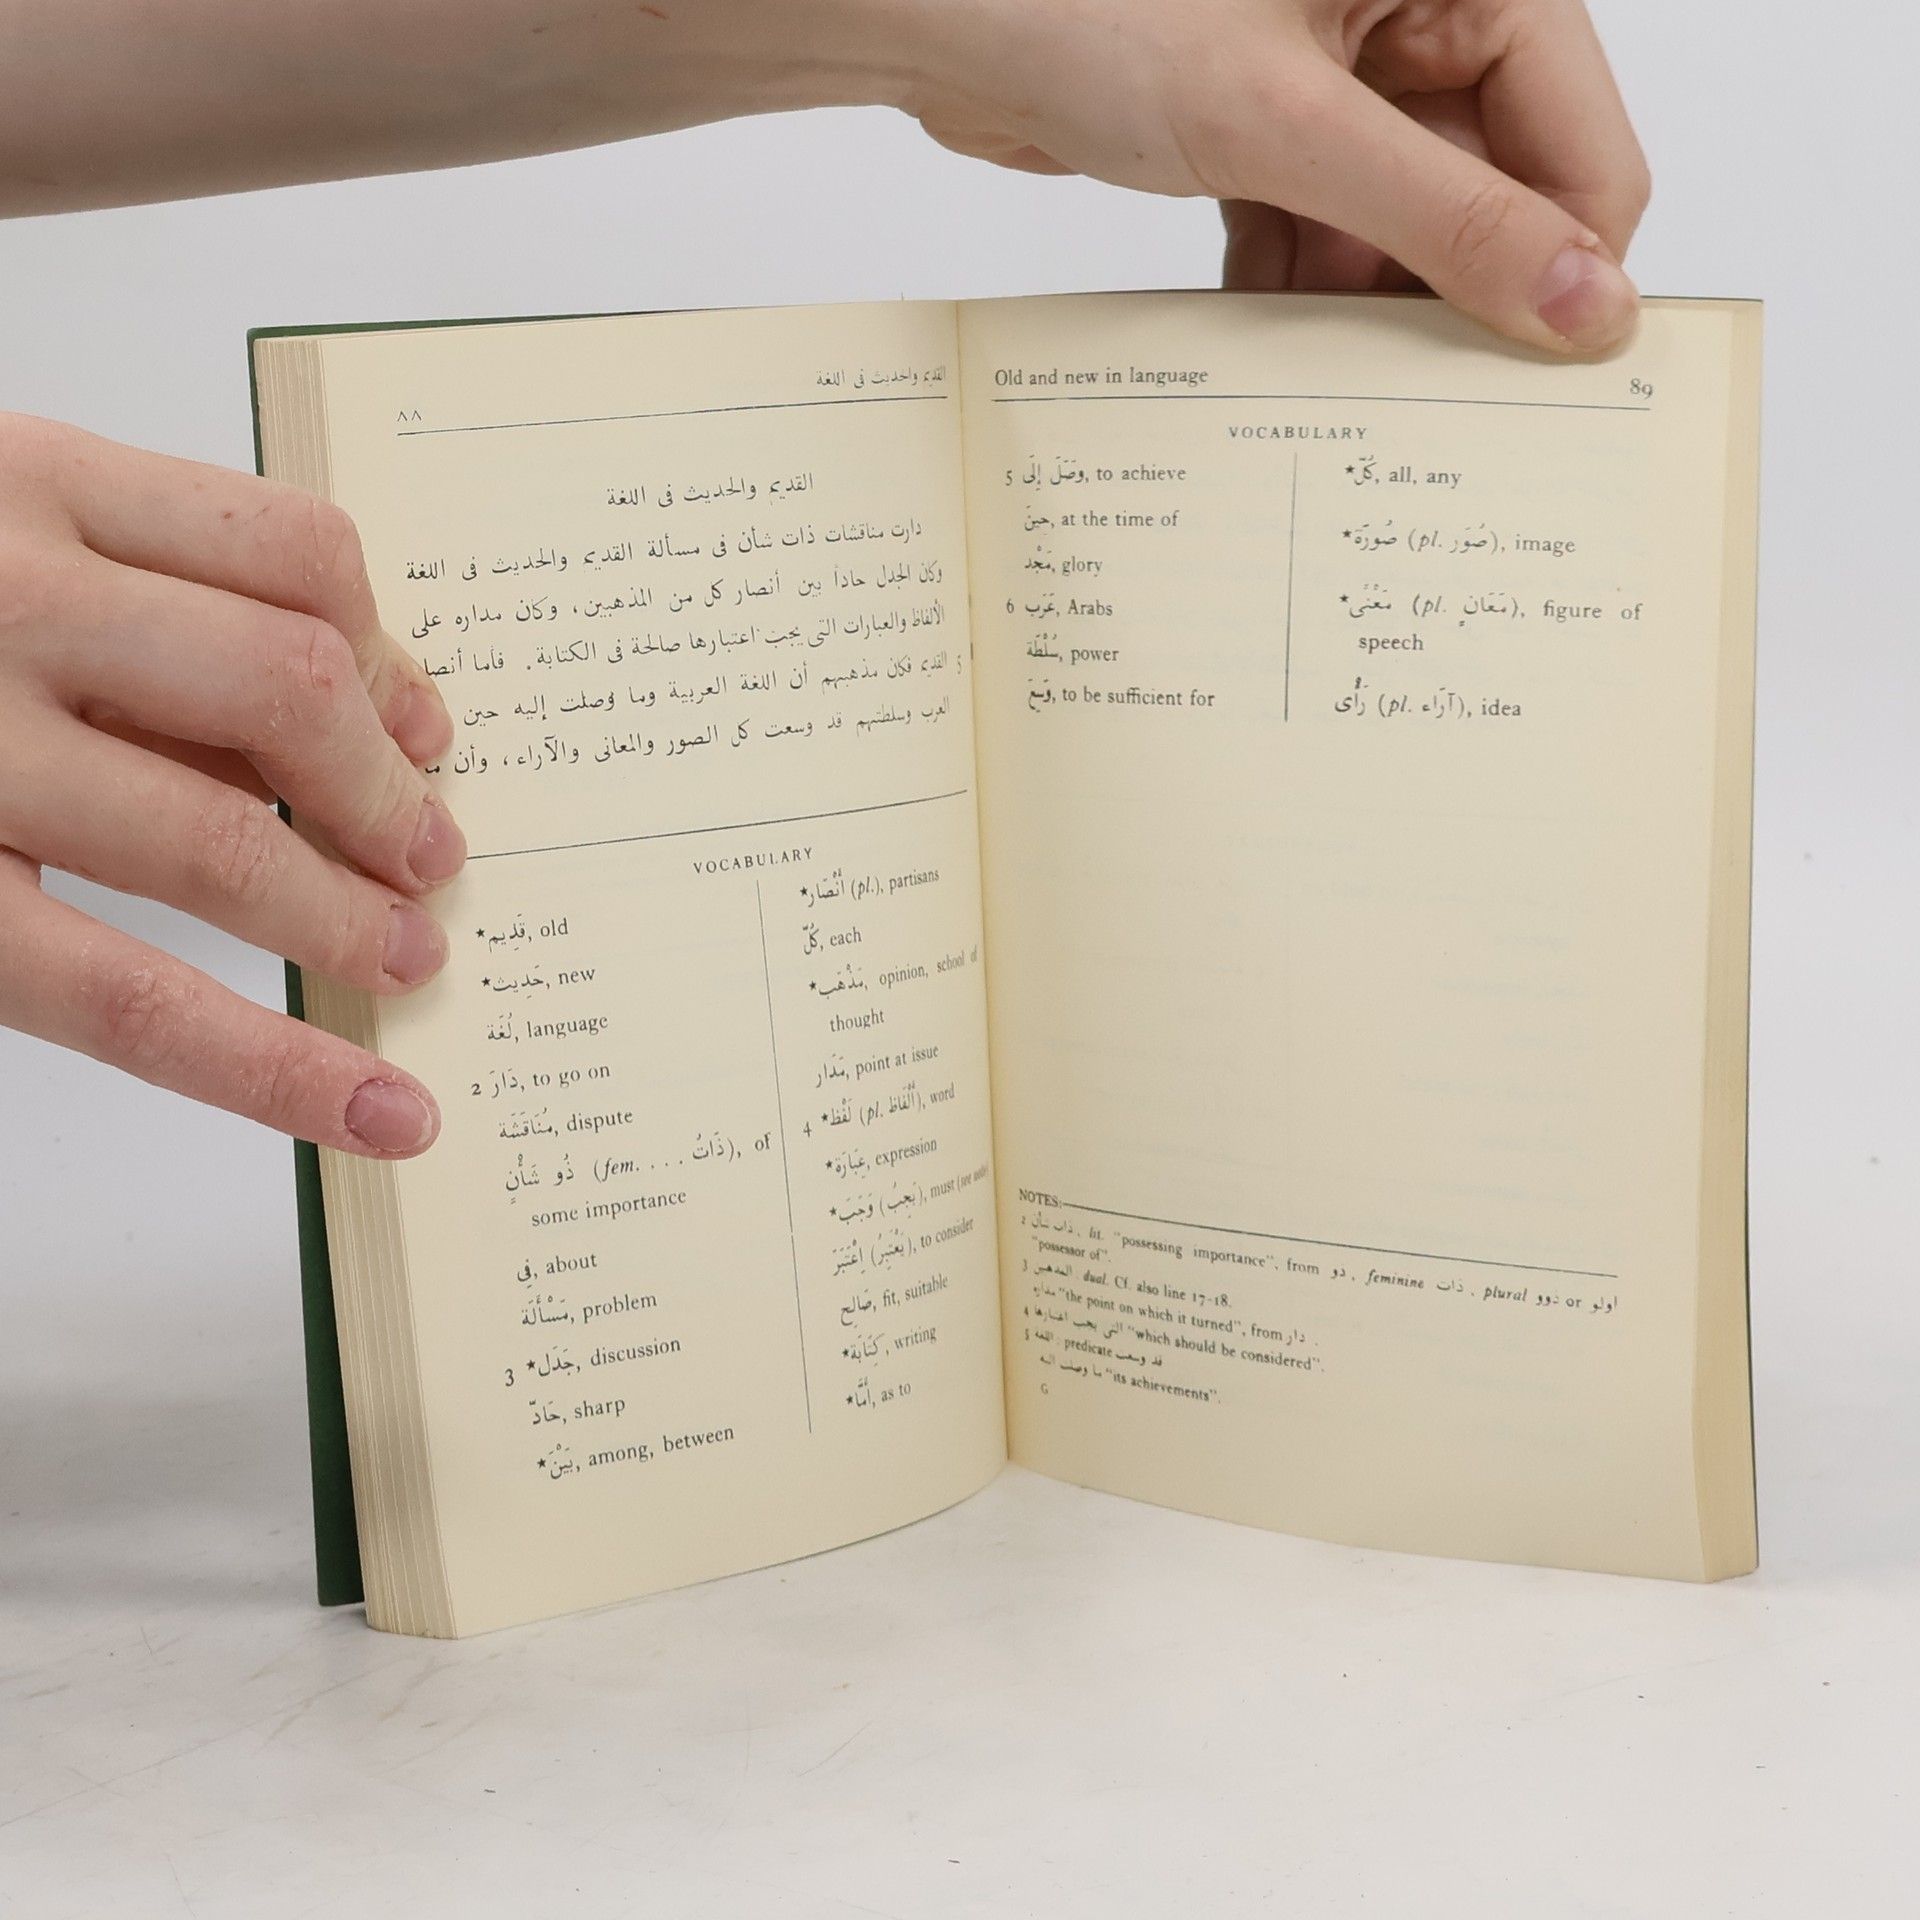 القديم والحديث فى اللغة
٨٨
القديم والحديث فى اللغة
دارت مناقشات ذات شأن فى مسألة القديم والحديث فى اللغة
وكان الجدل حاداً بين أنصار كل من المذهبين، وكان مداره على
الألفاظ والعبارات التى يجب اعتبارها صالحة فى الكتابة. فأما أنصا
5 القديم فكان مذهبهم أن اللغة العربية وما وصلت إليه حين
العرب وسلطتهم قد وسعت كل الصور والمعانى والآراء، وأن
VOCABULARY
*قَدِيم, old
*حَدِيث, new
لُغَة, language
2 دَارَ, to go on
مُنَاقَشَة, dispute
ذُو شَأْنٍ (fem. . . . ذَاتُ), of
some importance
فِي, about
مَسْأَلَة, problem
3 *جَدَل, discussion
حَادّ, sharp
*بَيْنَ, among, between
*أَنْصَار (pl.), partisans
كُلّ, each
*مَذْهَب, opinion, school of
thought
مَدَار, point at issue
4 *لَفْظ (pl. أَلْفَاظ), word
*عِبَارَة, expression
*وَجَبَ (يَجِبُ), must (see note)
اِعْتَبَرَ (يَعْتَبِرُ), to consider
صَالِح, fit, suitable
*كِتَابَة, writing
*أَمَّا, as to
Old and new in language
89
VOCABULARY
5 وَصَلَ إِلَى, to achieve
حِينَ, at the time of
مَجْد, glory
6 عَرَب, Arabs
سُلْطَة, power
وَسِعَ, to be sufficient for
*كُلّ, all, any
*صُورَة (pl. صُوَر), image
*مَعْنًى (pl. مَعَانٍ), figure of
speech
رَأْى (pl. آرَاء), idea
NOTES:
2 ذات شأن, lit. "possessing importance", from ذو, feminine ذات, plural ذوو or اولو
"possessor of".
3 المذهبين: dual. Cf. also line 17-18.
مداره "the point on which it turned", from دار.
4 التى يجب اعتبارها "which should be considered".
5 اللغة: predicate قد وسعت
ما وصلت اليه "its achievements".
G